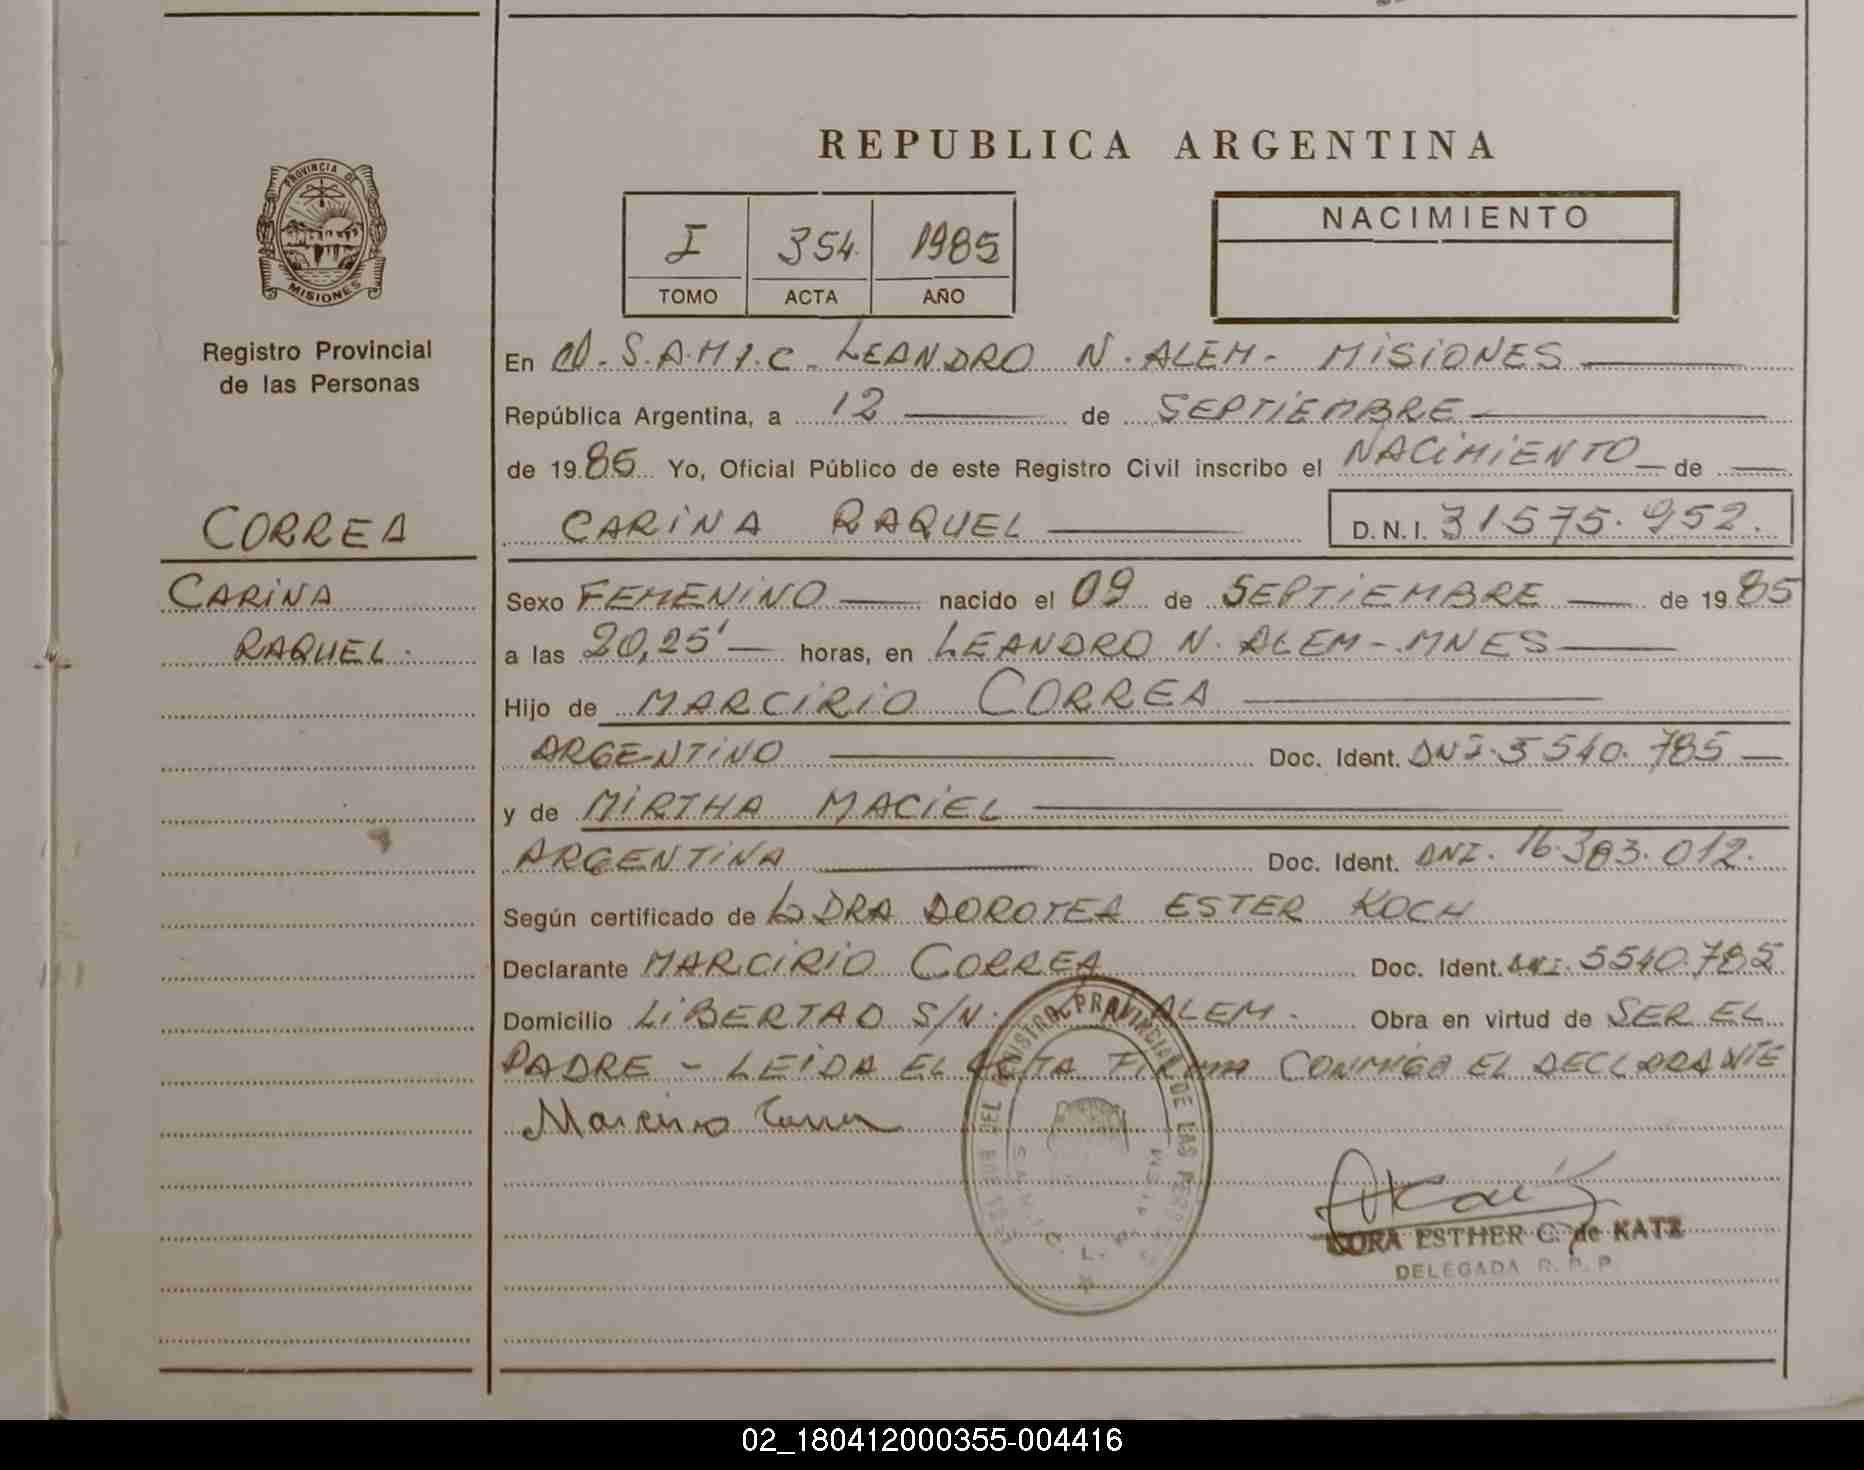 REPUBLICA ARGENTINA
PROVINCIA DE MISIONES
Registro Provincial
de las Personas
I 354 1985
TOMO ACTA AÑO
NACIMIENTO
En D. S.A.M.I.C. LEANDRO N. ALEM - MISIONES
República Argentina, a 12 de SEPTIEMBRE
de 1985 Yo, Oficial Público de este Registro Civil inscribo el NACIMIENTO de
CARINA RAQUEL D.N.I. 31575.952.
CORREA
CARINA
RAQUEL.
Sexo FEMENINO nacido el 09 de SEPTIEMBRE de 1985
a las 20,25' horas, en LEANDRO N. ALEM - MNES
Hijo de MARCIRIO CORREA
ARGENTINO Doc. Ident. DNI. 5540.785
y de MIRTHA MACIEL
ARGENTINA Doc. Ident. DNI. 16.383.012.
Según certificado de LA DRA DOROTEA ESTER KOCH
Declarante MARCIRIO CORREA Doc. Ident. DNI. 5540.785
Domicilio LIBERTAD S/N. ALEM. Obra en virtud de SER EL
PADRE - LEIDA EL ACTA FIRMA CONMIGO EL DECLARANTE
Marcirio Correa
DEL REGISTRO PROVINCIAL DE LAS
DORA ESTHER C. de KATZ
DELEGADA R. P. P.
02_180412000355-004416